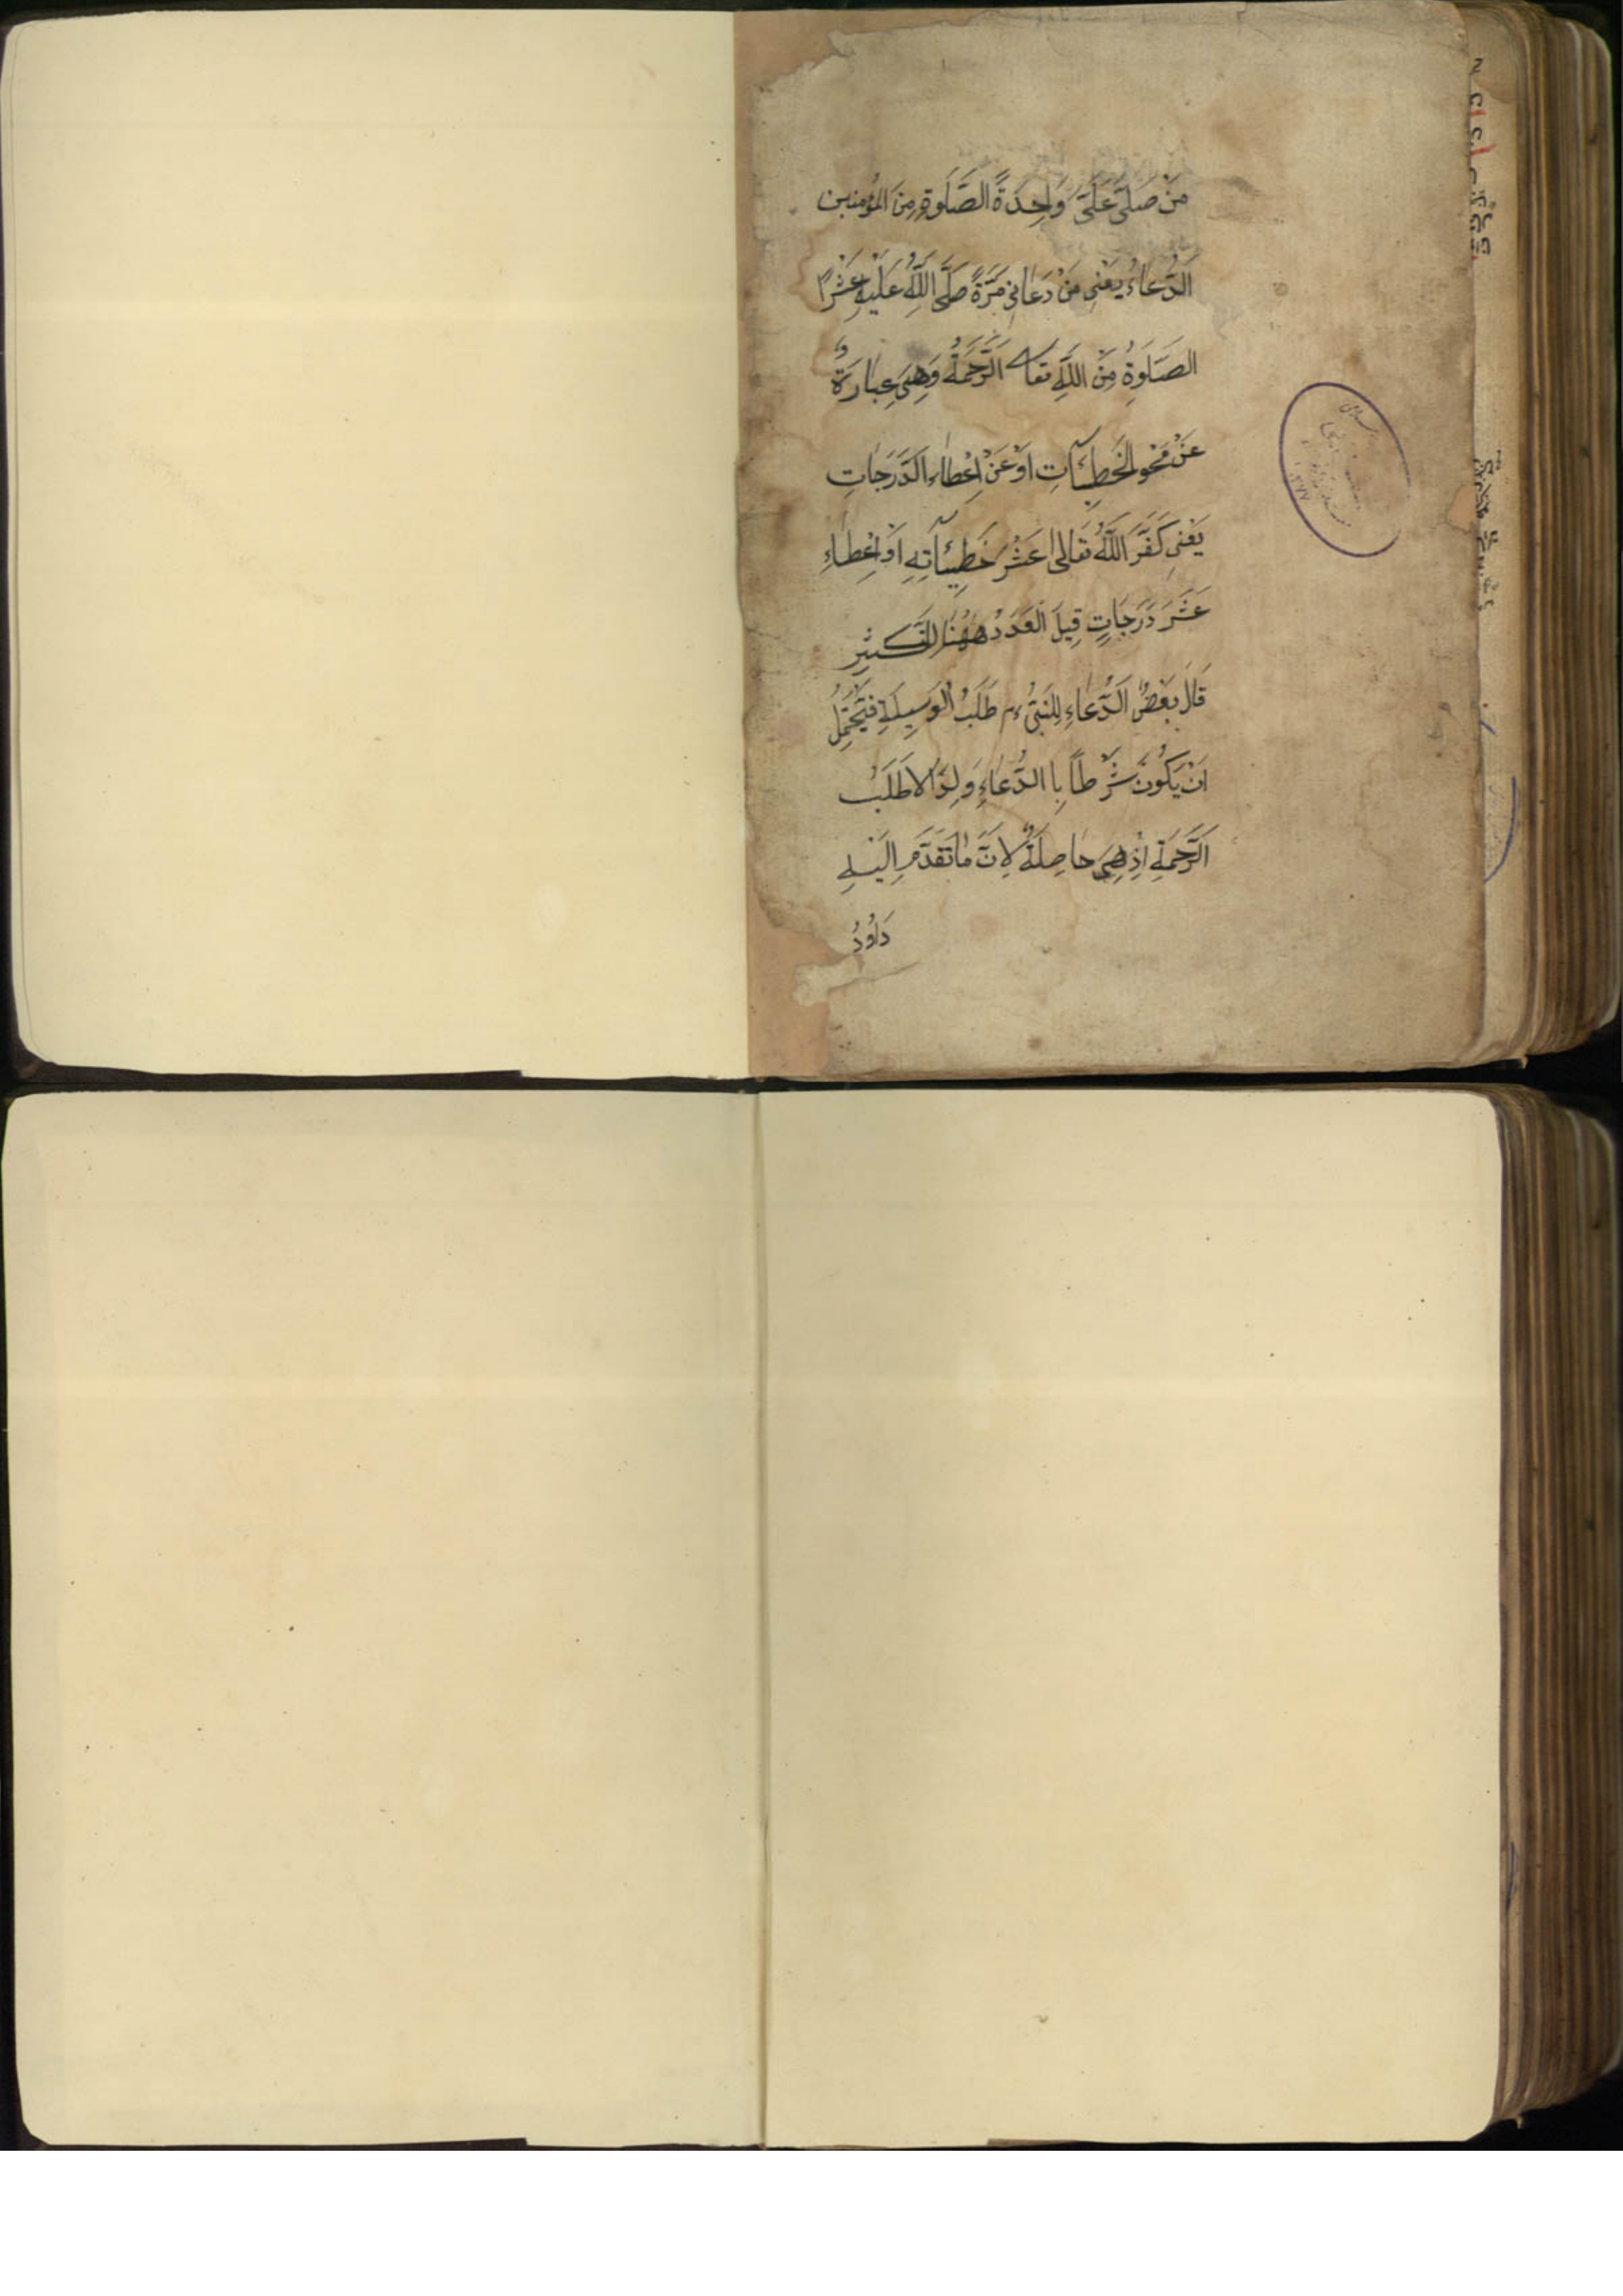 مَنْ صَلَّى عَلَىَّ وَاحِدَةً الصَّلَوةِ مِنَ المؤُمنين
الدُّعاءُ يَعْنِى مَنْ دَعَانِى مَرَّةً صَلَّى اللَّهُ عَلَيْهِ عَشْرًا
الصَّلَوةُ مِنَ اللَّهِ تعا الرَّحْمَةُ وَهِىَ عِبَارَةٌ
عَنْ مَحْوِ الخَطِيئَآتِ اَوْ عَنْ اِعْطَاءِ الدَّرَجَاتِ
يَعْنِى كَفَّرَ اللَّهُ تَعَالىٰ عَشْرَ خَطِيئَآتِهِ اَوْ اِعْطَاءِ
عَشَرَ دَرَجَاتٍ قِيلَ الْعَدَدُ هٰهُنَا للتَّكثِيرِ
قَالَ بَعْضٌ الدُّعَاءِ لِلنَّبِىِّ ءم طَلَبُ الْوَسِيلَةِ فَيَحْتَمِلُ
اَنْ يَكُونَ شَرْطًا بِا الدُّعَاءِ وَلِذَا لاَ طَلَبُ
الرَّحْمَةِ اِذْ هِىَ حَاصِلَةٌ لِاَنَّ مَا تَقَدَّمَ
دَاوُدُ